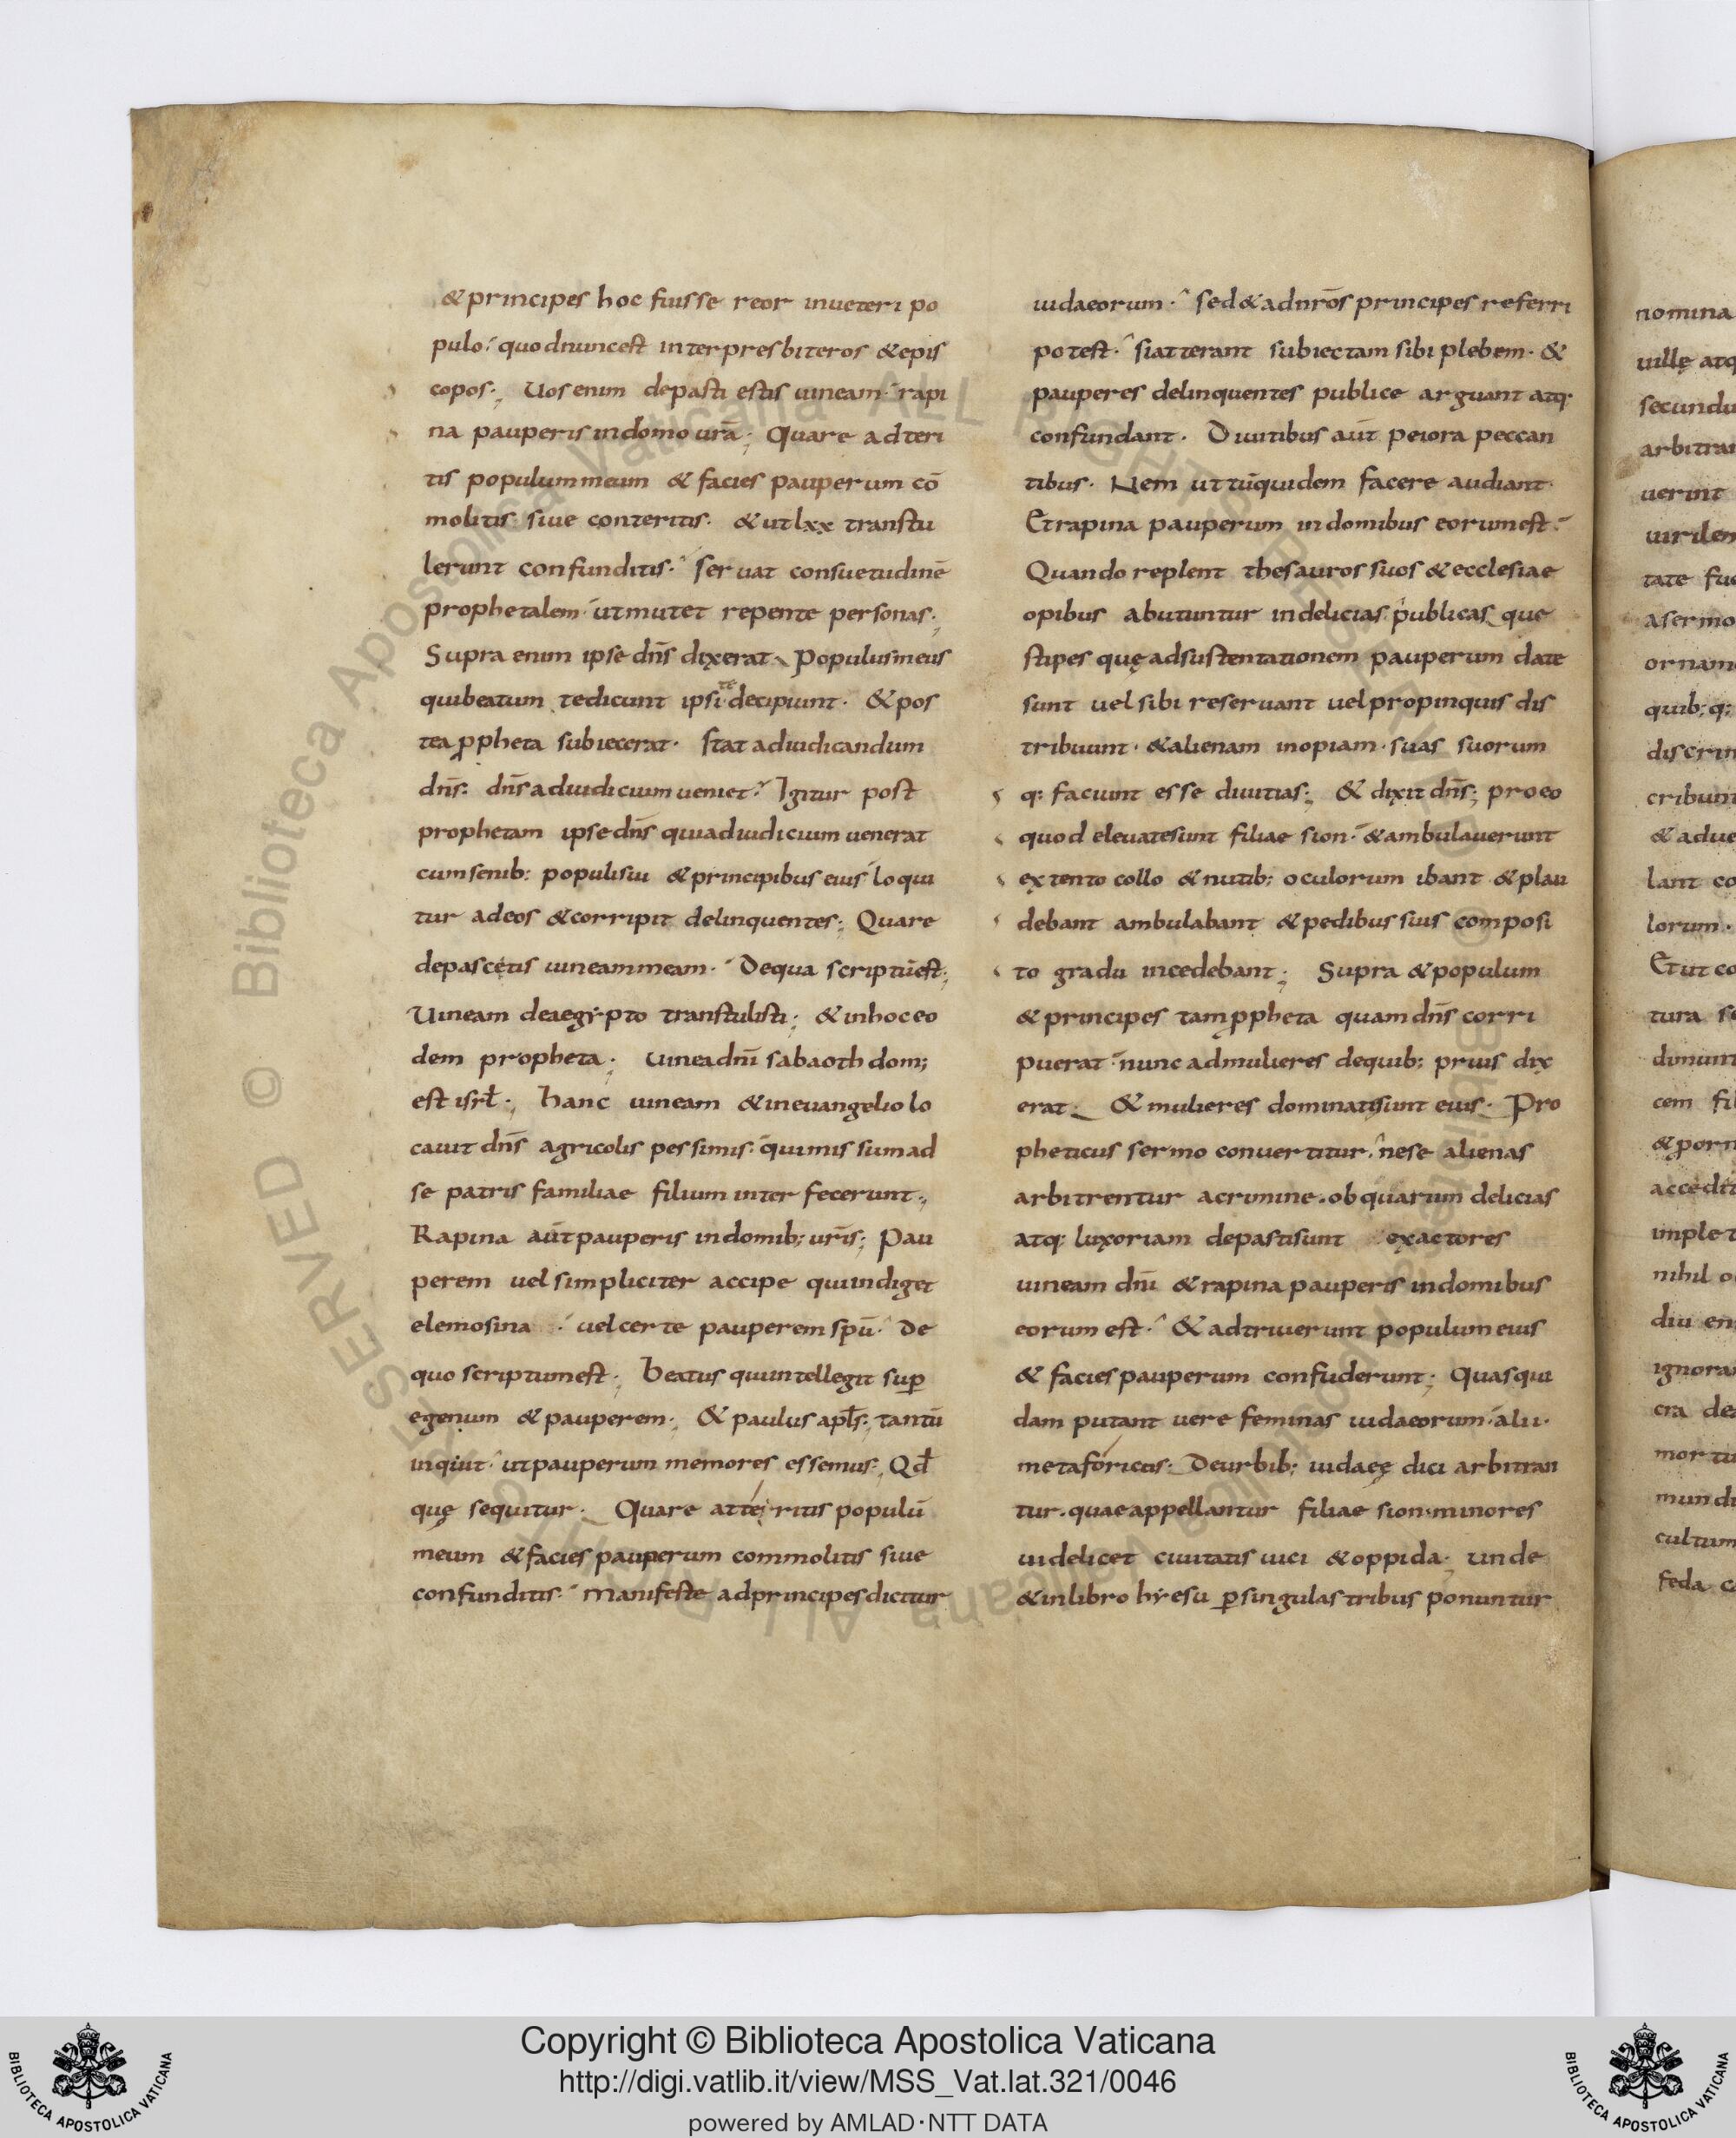 & principes hoc fuisse reor inueteri po
pulo· quodnuncest interpresbiteros &epis
copos·, Uos enim depasti estis uineam· rapi
na pauperis indomo urā; Quare adteri
tis populum meum & facies pauperum cō
molitis siue conteritis· & ut lxx transtu
lerunt confunditis· seruat consuetudinē
prophetalem· ut mutet repente personas·,
Supra enim ipse dn̄s dixerat· Populus meus
qui beatum te dicunt ipsi te decipiunt· & pos
tea ppheta subiecerat· stat adiudicandum
dn̄s: dn̄s adiudicium ueniet· Igitur post
prophetam ipse dn̄s qui adiudicium uenerat
cum senib: populi sui & principibus eius loqui
tur ad eos & corripit delinquentes; Quare
depascetis uineam meam· De qua scriptū est;
Uineam de aegypto transtulisti; & in hoc eo
dem propheta·, uinea dnī sabaoth dom;
est isrł·, hanc uineam & in euangelio lo
cauit dn̄s agricolis pessimis· qui missum ad
se patris familiae filium interfecerunt·,
Rapina aūt pauperis indomib; urīs; Pau
perem uel simpliciter accipe qui indiget
elemosina · uel certe pauperem spū· De
quo scriptum est·, Beatus qui intellegit sup
egenum & pauperem·, & paulus apłs; tantū
inqiut· ut pauperum memores essemus·, Qđ
quę sequitur· Quare atteritis populū
meum & facies pauperum commolitis siue
confunditis· Manifeste ad principes dicitur
iudaeorum· sed & ad nrōs principes referri
potest· si atterant subiectam sibi plebem· &
pauperes delinquentes publice arguant atq·
confundant· Diuitibus aūt peiora peccan
tibus· Nem uttūquidem facere audiant·
Et rapina pauperum in domibus eorum est·
Quando replent thesauros suos & ecclesiae
opibus abutuntur in delicias publicas que
stipes quę ad sustentationem pauperum date
sunt uel sibi reseruant uel propinquis dis
tribuunt· & alienam inopiam· suas suorum
q: faciunt esse diuitias·, & dixit dn̄s; pro eo
quod eleuate sunt filiae sion· & ambulauerunt
extento collo & nutib; oculorum ibant & plau
debant ambulabant & pedibus suis composi
to gradu incedebant·, Supra & populum
& principes tam ppheta quam dn̄s corri
puerat· nunc ad mulieres de quib; prius dix
erat· & mulieres dominatę sunt eius· Pro
pheticus sermo conuertitur· ne se alienas
arbitrentur a crimine· ob quarum delicias
atq: luxoriam depasti sunt exactores
uineam dnī & rapina pauperis in domibus
eorum est· & adtriuerunt populum eius
& facies pauperum confuderunt; Quas qui
dam putant uere feminas iudaeorum· alii·
metaforicos· De urbib; iudaeę dici arbitran
tur· quae appellantur filiae sion· minores
uidelicet ciuitatis uici & oppida· unde
& in libro hyesu p singulas tribus ponuntur
nomina
uillę atq
secundu
arbitrar
uerint
uirilem
tate fu
a sermo
ornam
quib; q;
discrim
cribunt
& adue
lant co
lorum·
Et ut co
tura se
dimunt
cem fil
& porn
accedit
implet
nihil o
diu en
ignora
cra de
mortu
mundi
cultum
feda c
© Biblioteca Apostolica Vaticana ALL RIGHTS RESERVED
Copyright © Biblioteca Apostolica Vaticana
http://digi.vatlib.it/view/MSS_Vat.lat.321/0046
powered by AMLAD·NTT DATA
BIBLIOTECA APOSTOLICA VATICANA
BIBLIOTECA APOSTOLICA VATICANA